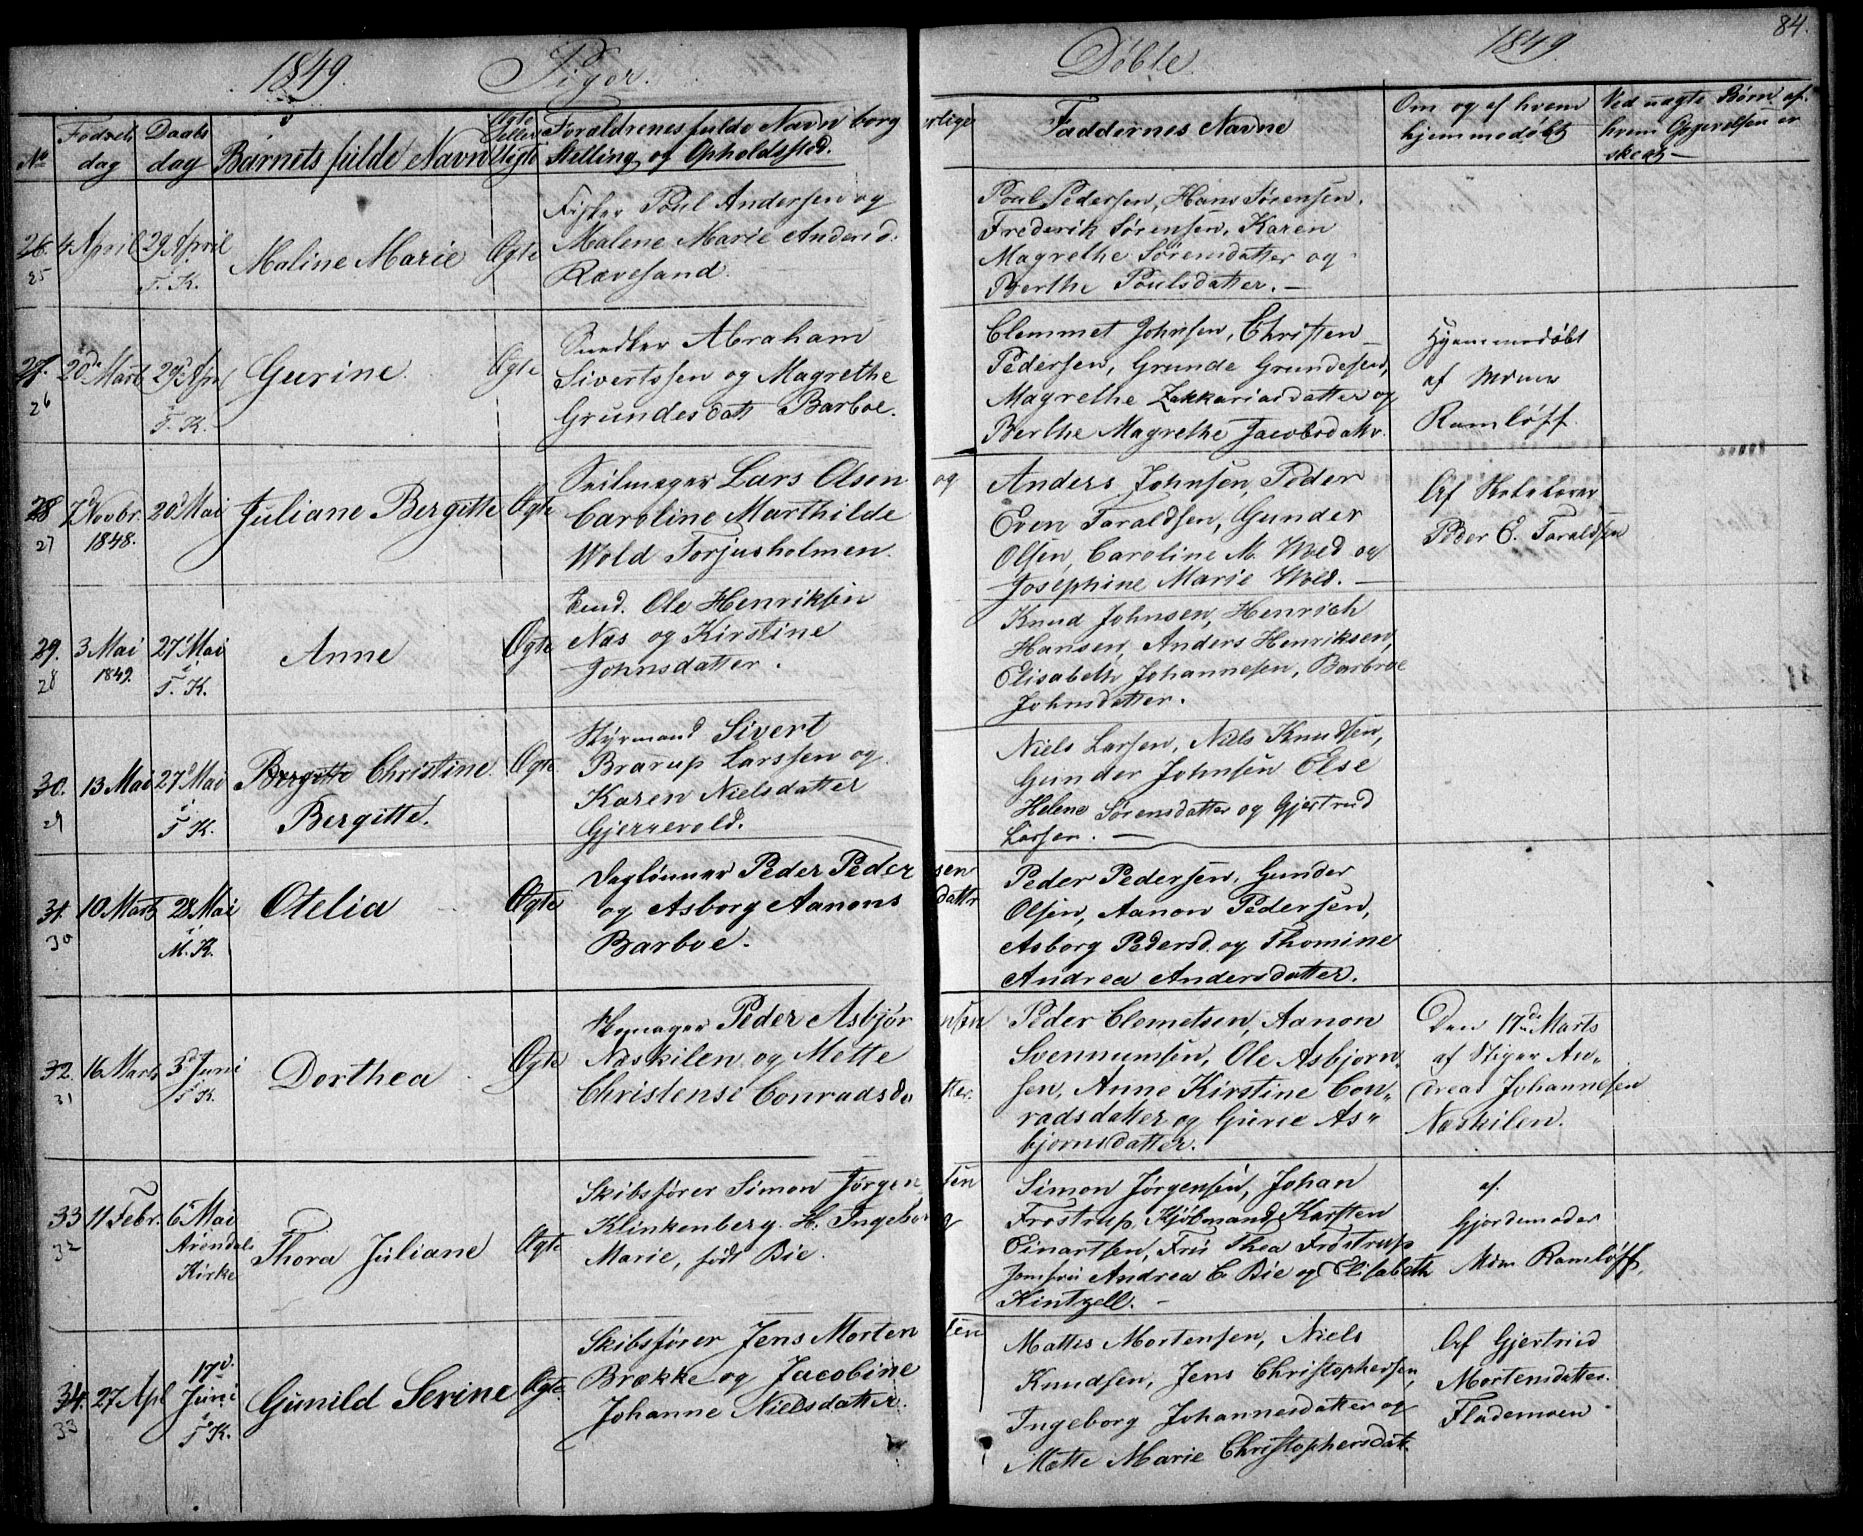 1849. Piger. Døbte 1849. 84.
No Fødsels dag Daabs dag Barnets fulde Navn Ægte eller Uægte Forældrenes fulde Navn borgerlige Stilling og Opholdssted. Faddernes Navne Om og af hvem hjemmedøbt Ved uægte Børn af hvem Opgivelsen er skeet
26. 25 4 April 29 April i T. K. Maline Marie Ægte
Fisker Poul Andersen og
Malene Marie Andersd.
Rævesand.
Poul Pedersen, Hans Sørensen,
Frederik Sørensen, Karen
Magrethe Sørensdatter og
Berthe Poulsdatter.
27. 26 20de Marts 29de Apr i T. K. Gurine Ægte
Snedker Abraham
Sivertssen og Magrethe
Grundesdatt Barboe.
Clemmet Johnsen, Christen
Pedersen, Grunde Grundesen,
Magrethe Zakkariasdatter og
Berthe Magrethe Jacobsdattr.
Hjemmedøbt
af Mdme
Ramløff.
28 27 7d Novbr. 1848. 20d Mai Juliane Bergitte Ægte
Seilmager Lars Olsen og
Caroline Marthilde
Wold Torjusholmen.
Anders Johnsen, Peder
Even Taraldsen, Gunder
Olsen, Caroline M. Wold og
Josephine Marie Wold.
Af Skolelærer
Peder E. Taraldsen
29. 28 3 Mai 1849. 27 Mai i T. K. Anne Ægte
Ole Henriksen
Næs og Kirstine
Johnsdatter.
Knud Johnsen, Henrich
Hansen, Anders Henriksen,
Elisabeth Johannesen, Barbroe
Johnsdatter.
30. 29 13 Mai 27d Mai i T K. Christine
Bergitte. Ægte
Styrmand Sivert
Brarup Larssen og
Karen Nielsdatter
Gjerrevold.
Niels Larsen, Niels Knudsen,
Gunder Johnsen Else
Helene Sørensdatter og Gjertrud
Larsen.
31. 30 10 Marts 28 Mai i M. K. Otelia Ægte
Daglönner Peder Pedersen
og Asborg Aanonsdattr
Barboe.
Peder Pedersen, Gunder
Olsen, Aanon Pedersen,
Asborg Pedersd. og Thomine
Andrea Andersdatter.
32. 31 16 Marts 3d Juni i T K. Dorthea Ægte
Peder Asbjørnsen
Næskilen og Mette
Christense Conradsdatter.
Peder Clemetsen, Aanon
Svennumsen, Ole Asbjørn-
sen, Anne Kirstine Con-
radsdatter og Gurie As-
bjørnsdatter.
Den 17de Marts
af Stiger An-
dreas Johannesen
Næskilen.
33 32 11 Febr. 6 Mai Arendals Kirke Thora Juliane Ægte
Skibsfører Simon Jørgensen
Klinkenberg. H. Ingeborg
Marie, født Bie.
Simon Jørgensen, Johan
Frostrup, Kjøbmand Karsten
Einartsen, Fru Thea Frostrup
Jomfru Andrea C. Bie og Elisabeth
Kintzell.
af.
Gjordemoder
Mdm Ramløff.
34. 33 27 Apl 17d. Juni i T K. Gunild Serine Ægte
Skibsfører Jens Mortensen
Brække og Jacobine
Johanne Nielsdatter.
Mattis Mortensen, Niels
Knudsen, Jens Christophersen,
Ingeborg Johannesdatter og
Mette Marie Christophersdat.
Af Gjertrud
Mortensdatter
Flademoen